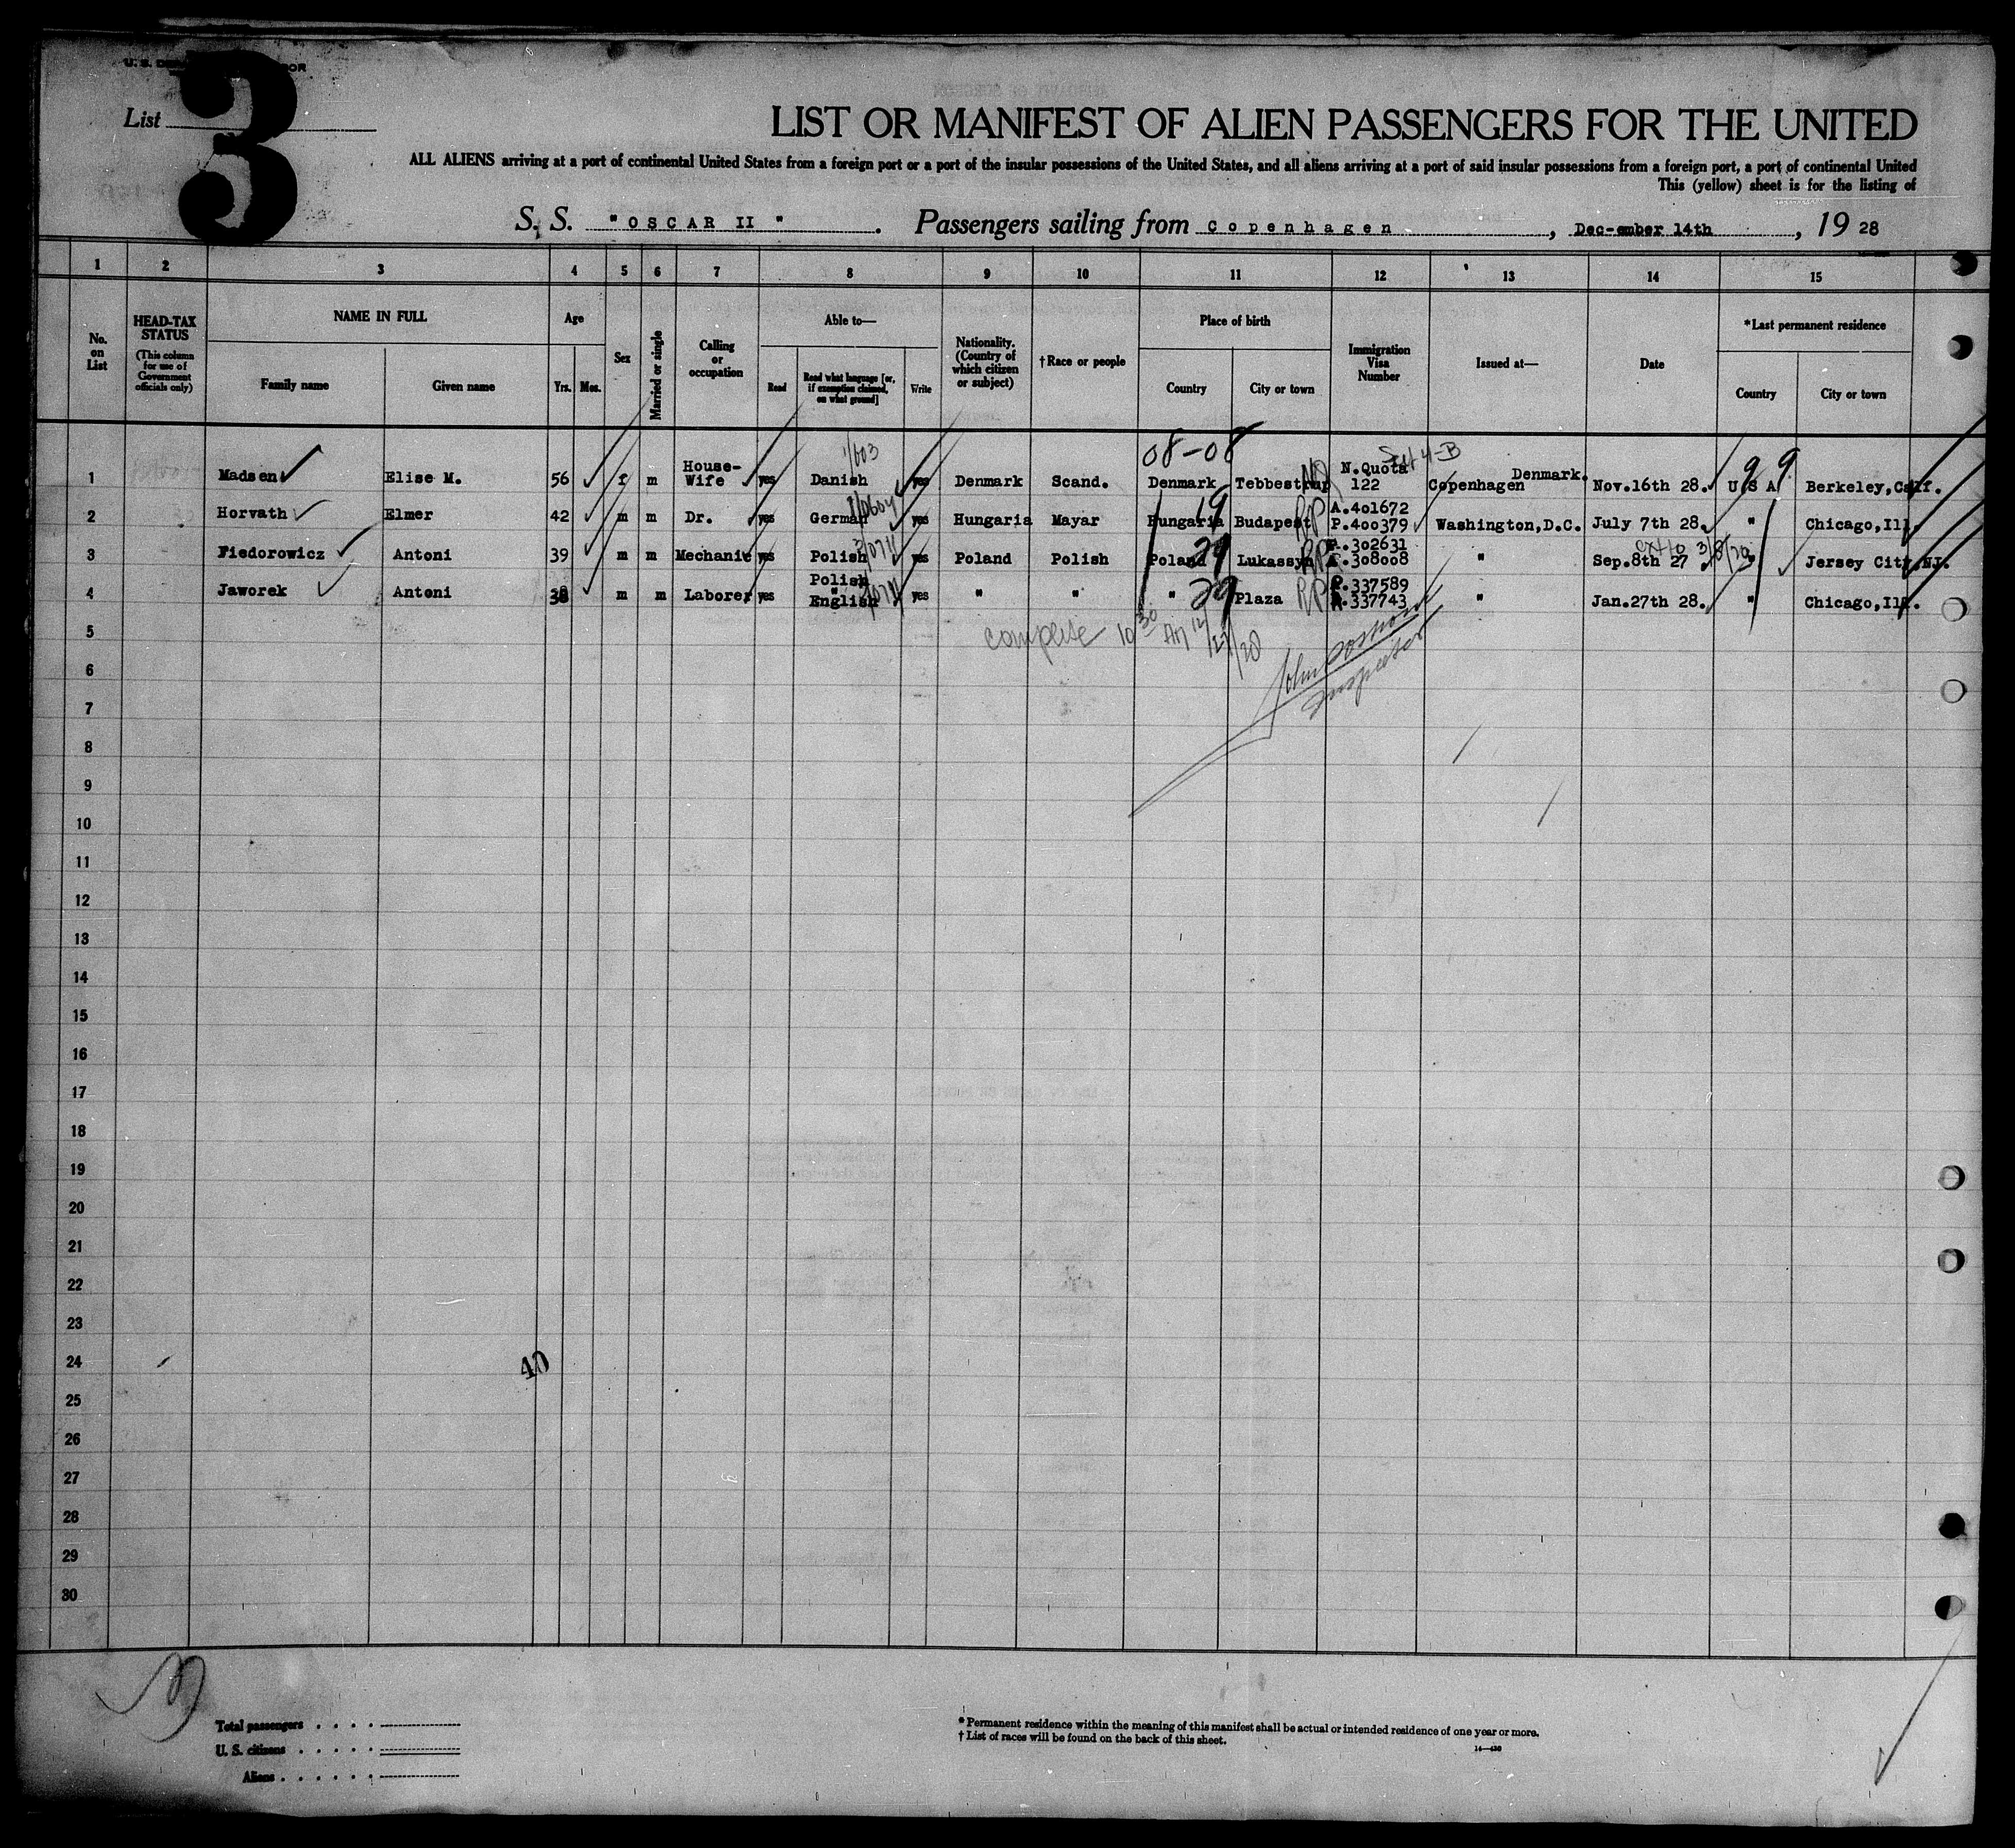 U. S.
List 3
LIST OR MANIFEST OF ALIEN PASSENGERS FOR THE UNITED
ALL ALIENS arriving at a port of continental United States from a foreign port or a port of the insular possessions of the United States, and all aliens arriving at a port of said insular possessions from a foreign port, a port of continental United
This (yellow) sheet is for the listing of
S. S. "OSCAR II". Passengers sailing from Copenhagen, Dec-ember 14th, 19 28
1 2 3 4 5 6 7 8 9 10 11 12 13 14 15
No. on List
HEAD-TAX STATUS
(This column for use of Government officials only)
NAME IN FULL
Family name Given name
Age
Yrs. Mos.
Sex
Married or single
Calling or occupation
Able to—
Read
Read what language [or, if exemption claimed, on what ground]
Write
Nationality. (Country of which citizen or subject)
†Race or people
Place of birth
Country City or town
Immigration Visa Number
Issued at—
Date
*Last permanent residence
Country City or town
08-08
1 Madsen Elise M. 56 f m House-Wife yes Danish yes Denmark Scand. Denmark Tebbestrup N.Quota 122 Copenhagen Denmark. Nov.16th 28. U S A Berkeley, Calf.
2 Horvath Elmer 42 m m Dr. yes German yes Hungaria Mayar Hungaria Budapest A.401672 P.400379 Washington,D.C. July 7th 28. " Chicago,Ill.
3 Fiedorowicz Antoni 39 m m Mechanic yes Polish yes Poland Polish Poland Lukassyn .302631 .308008 " Sep.8th 27 " Jersey City,NJ.
4 Jaworek Antoni 38 m m Laborer yes Polish " English yes " " " Plaza P.337589 .337743 " Jan.27th 28. " Chicago,Ill.
5 complete 10 30 AM 12/27/28
6 John
7 Inspector
8
9
10
11
12
13
14
15
16
17
18
19
20
21
22
23
24
40
25
26
27
28
29
30
Total passengers
U. S. citizens
Aliens
* Permanent residence within the meaning of this manifest shall be actual or intended residence of one year or more.
† List of races will be found on the back of this sheet.